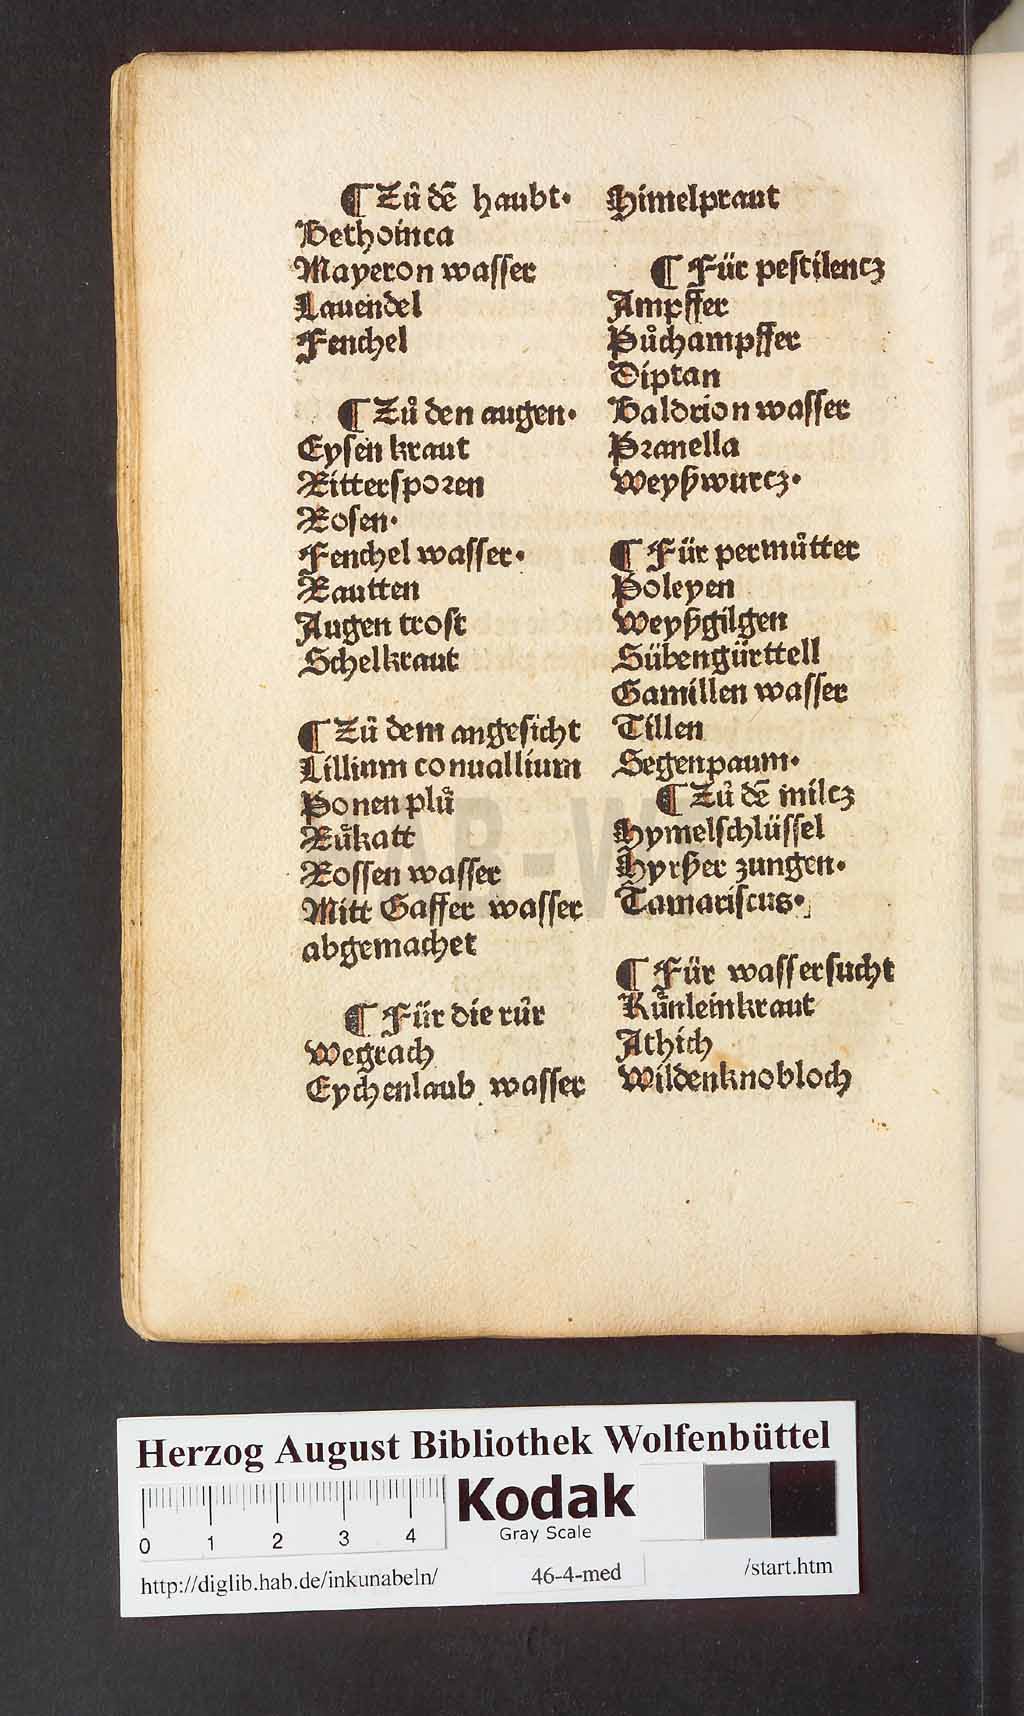 ¶ Zů dē haubt·
Bethoinca
Mayeron wasser
Lauendel
Fenchel
¶ Zů den augen·
Eysen kraut
Rittersporen
Rosen·
Fenchel wasser·
Rautten
Augen trost
Schelkraut
¶ Zů dem angesicht
Lillium conuallium
Ponen plů
Růkatt
Rossen wasser
Mitt Gaffer wasser
abgemachet
¶ Für die růr
Wegrach
Eychenlaub wasser
Himelpraut
¶ Für pestilentz
Ampffer
Půchampffer
Diptan
Baldrion wasser
Pranella
Weyßwurtz·
¶ Für permůtter
Poleyen
Weyßgilgen
Sübengürttell
Gamillen wasser
Tillen
Segenpaum·
¶ Zů dē miltz
Hymelschlüssel
Hyrßer zungen·
Tamariscus·
¶ Für wassersucht
Kůnleinkraut
Athich
Wildenknobloch
HAB-W
Herzog August Bibliothek Wolfenbüttel
0 1 2 3 4
Kodak
Gray Scale
http://diglib.hab.de/inkunabeln/ 46-4-med /start.htm